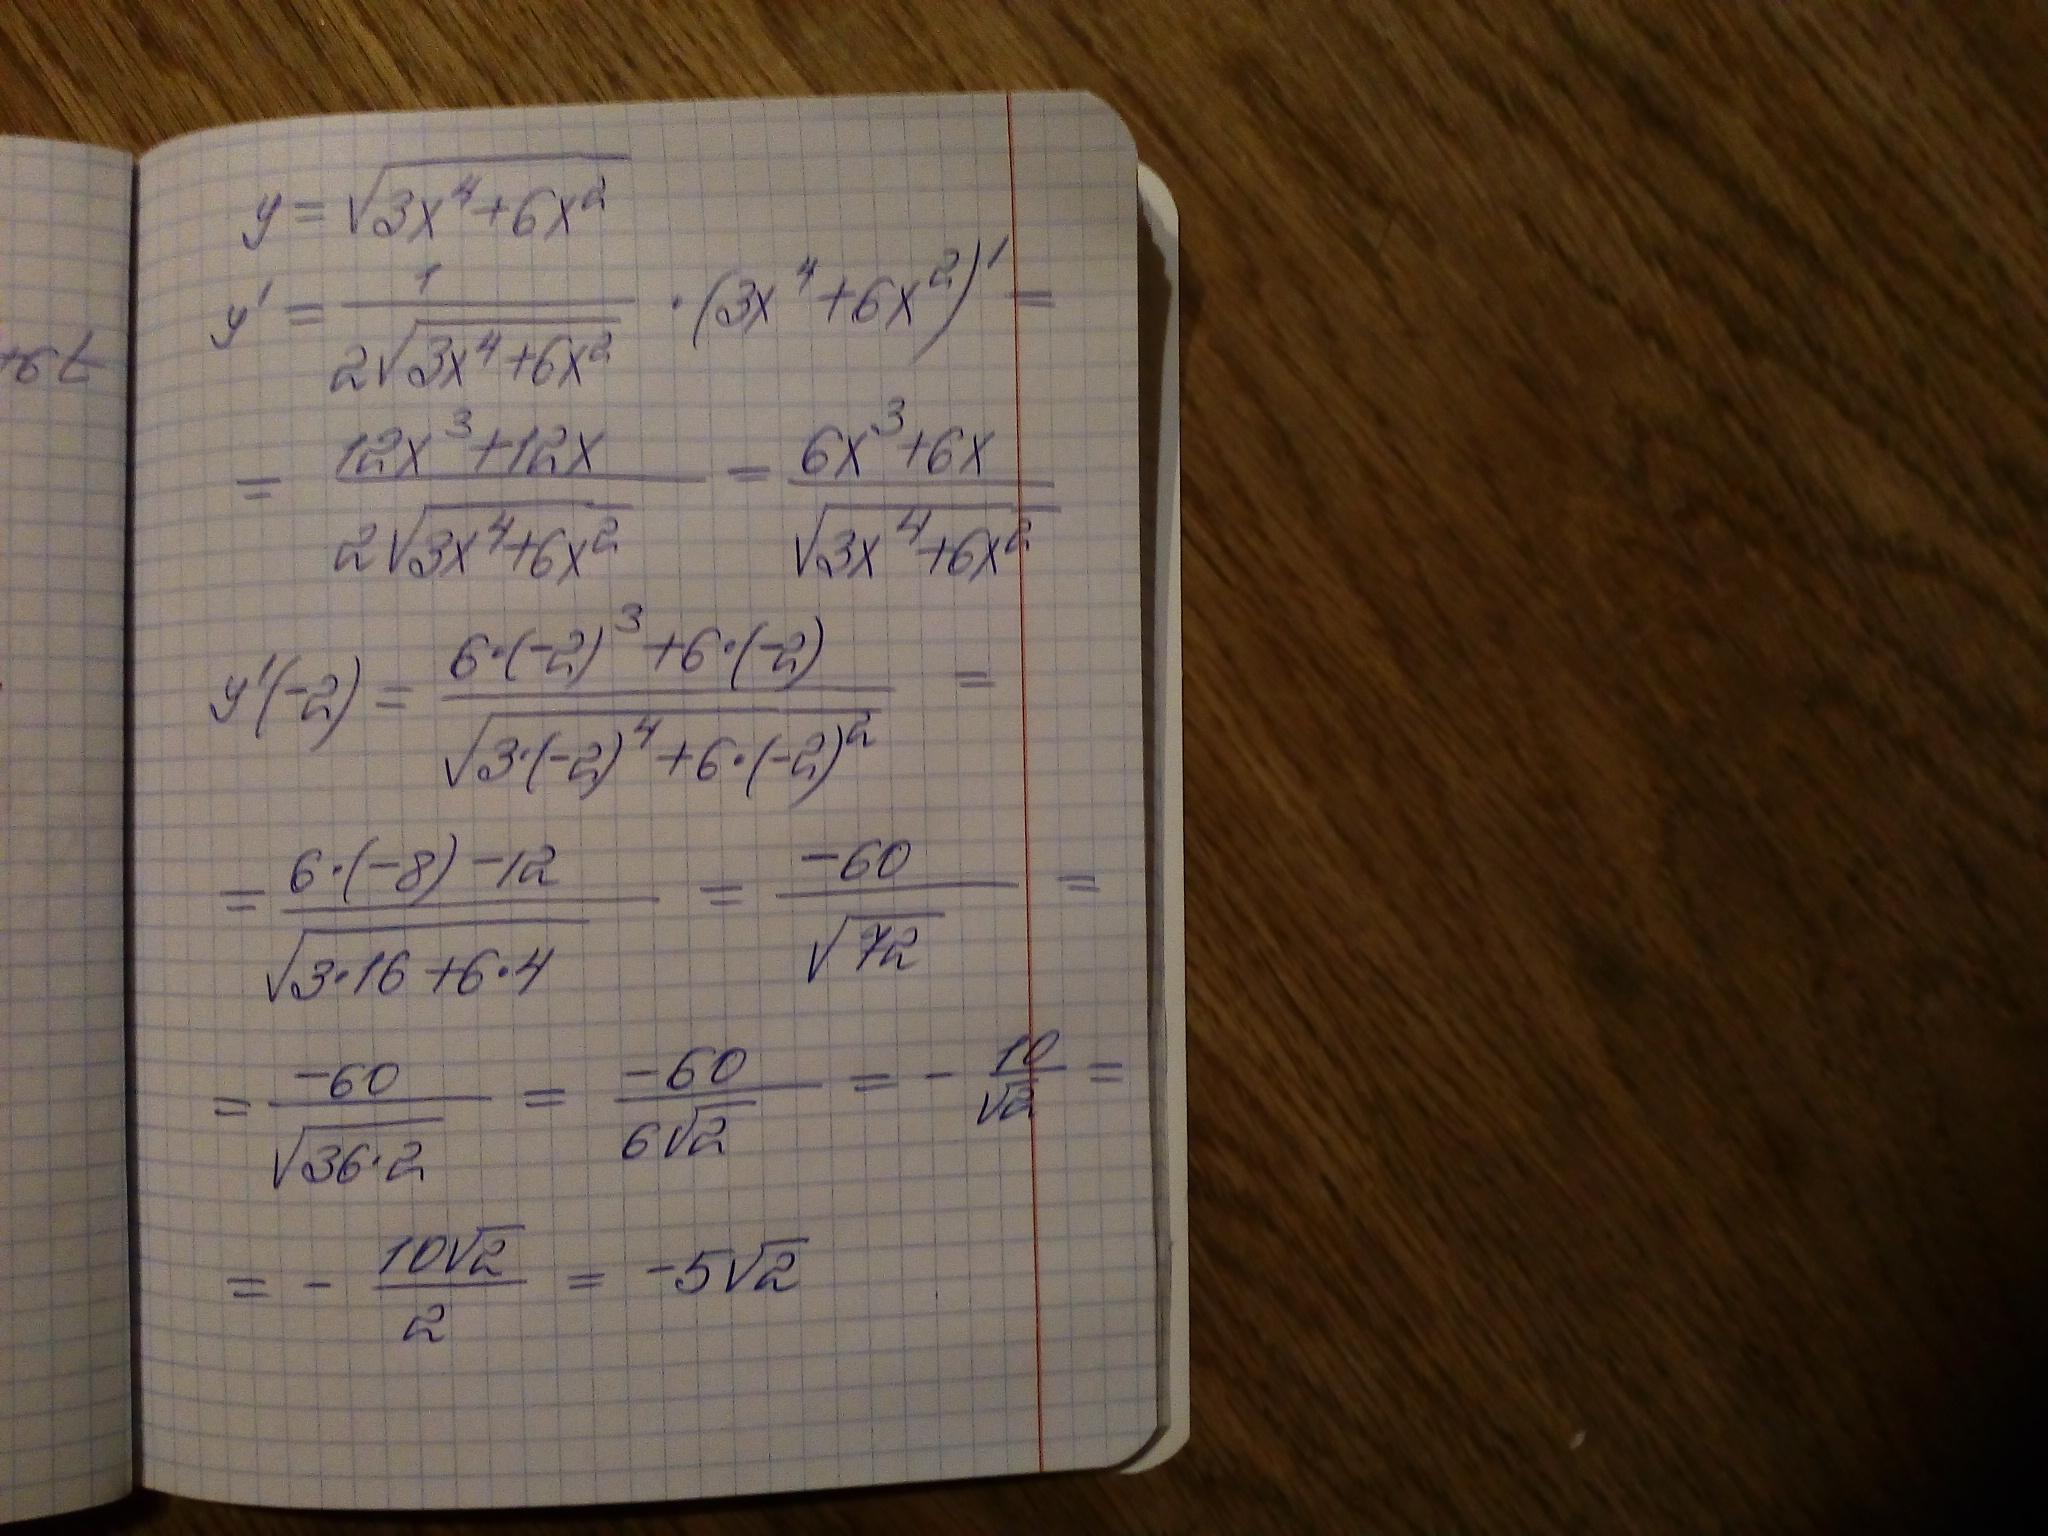 y = √(3x⁴+6x²)
y' = 1/(2√(3x⁴+6x²)) · (3x⁴+6x²)' =
= (12x³+12x)/(2√(3x⁴+6x²)) = (6x³+6x)/√(3x⁴+6x²)
y'(-2) = (6·(-2)³+6·(-2))/√(3·(-2)⁴+6·(-2)²) =
= (6·(-8)-12)/√(3·16+6·4) = -60/√72 =
= -60/√(36·2) = -60/(6√2) = - 10/√2 =
= - 10√2/2 = -5√2